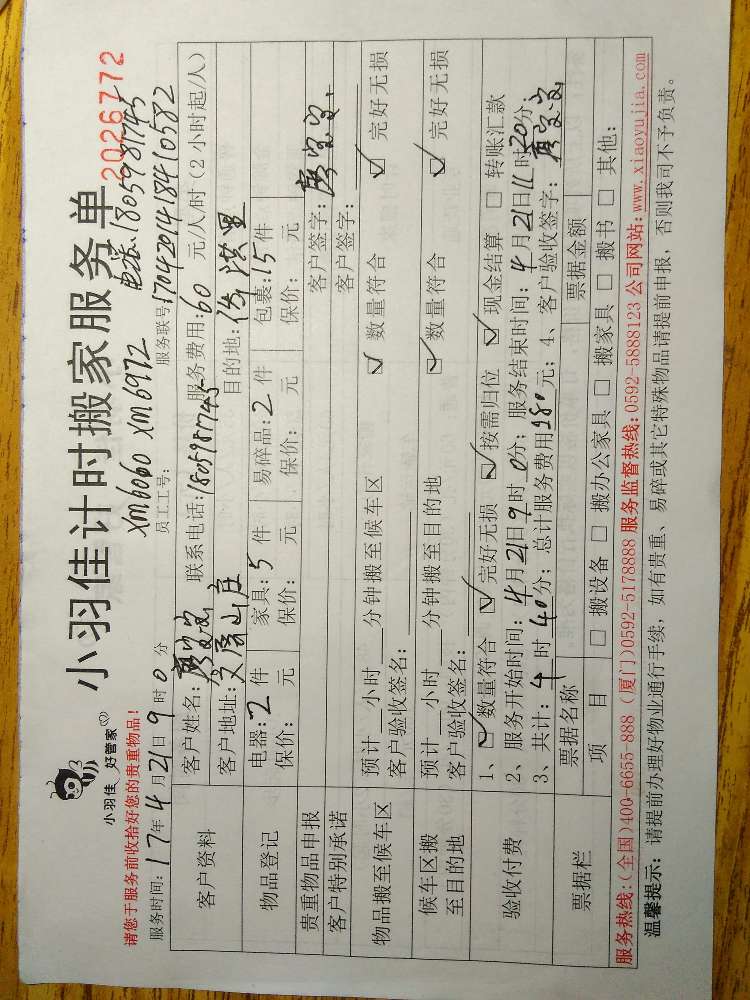 小羽佳 好管家
小羽佳计时搬家服务单
2026772
请您于服务前收拾好您的贵重物品!
XM6060 XM6972
电话:18059987745
服务时间: 17年 4月 21日 9时 0分
员工工号:
服务联号170420141841058 2
客户资料
客户姓名:
联系电话:
服务费用:60 元/人/时(2小时起/人)
客户地址:
目的地:
物品登记
电器:2 件
家具:5 件
易碎品:2 件
包裹:15 件
保价: 元
保价: 元
保价: 元
保价: 元
贵重物品申报
客户签字:
客户特别承诺
客户签字:
物品搬至候车区
预计 小时 分钟搬至候车区
☑ 数量符合 ☑ 完好无损
客户验收签名:
候车区搬至目的地
预计 小时 分钟搬至目的地
☑ 数量符合 ☑ 完好无损
客户验收签名:
验收付费
1、☑ 数量符合 ☑ 完好无损 ☑ 按需归位 ☑ 现金结算 □ 转账汇款
2、服务开始时间: 4月21日9时0分; 服务结束时间: 4月21日11时20分;
3、共计: 4时40分; 总计服务费用280元; 4、客户验收签字:
票据栏
票据名称
票据金额
项 目
□ 搬设备 □ 搬办公家具 □ 搬家具 □ 搬书 □ 其他:
服务热线:(全国)400-6655-888 (厦门)0592-5178888 服务监督热线:0592-5888123 公司网站:www.xiaoyujia.com
温馨提示: 请提前办理好物业通行手续, 如有贵重、易碎或其它特殊物品请提前申报, 否则我司不予负责。